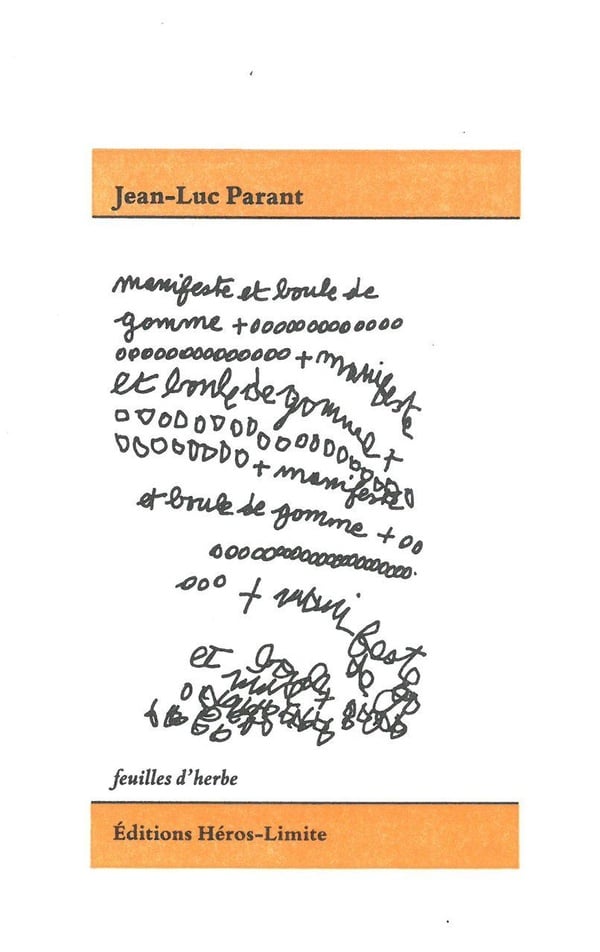 Jean-Luc Parant
manifeste et boule de
gomme +ooooooooooooo
oooooooooooooo + manifeste
et boule de gomme +
ooooooooooooooooooo
oooooooo + manifeste
et boule de gomme + oo
oooooooooooooooooooo
ooo + manifeste
et
feuilles d'herbe
Éditions Héros-Limite